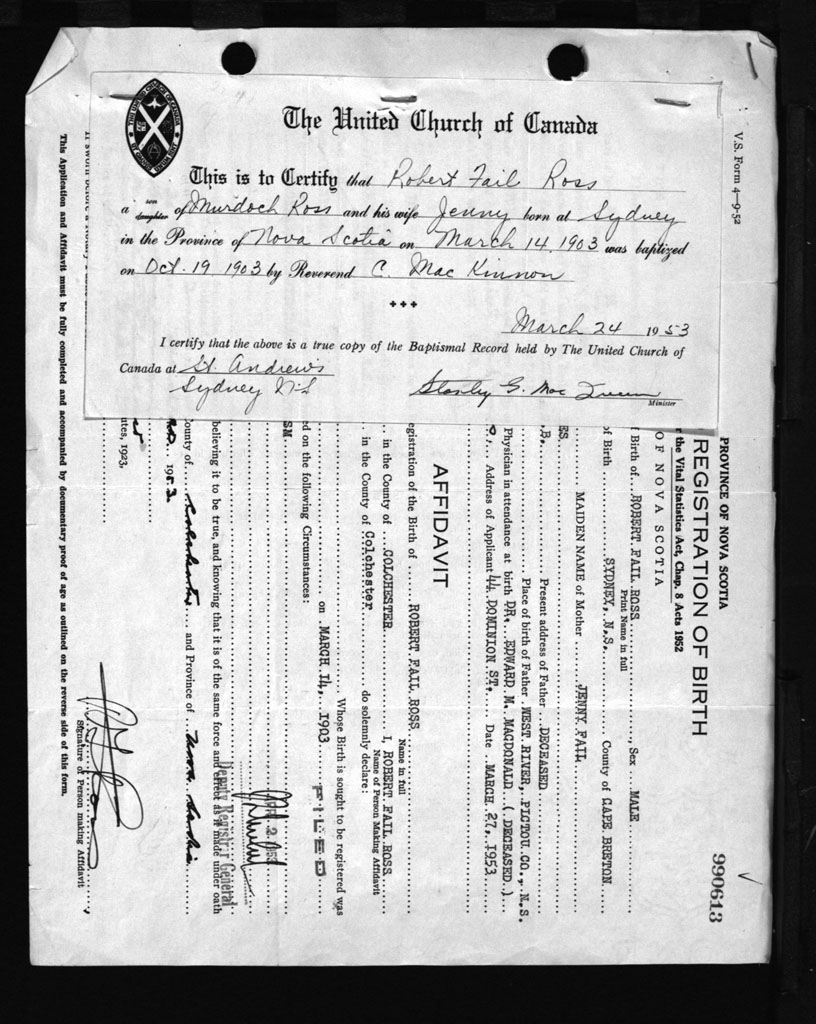 The United Church of Canada
This is to Certify that Robert Fail Ross
a son daughter of Murdoch Ross and his wife Jenny born at Sydney
in the Province of Nova Scotia on March 14, 1903 was baptized
on Oct. 19 1903 by Reverend C. Mac Kinnon
March 24 1953
I certify that the above is a true copy of the Baptismal Record held by The United Church of
Canada at St. Andrew's
Sydney N.S.
Stanley G. Mac
Minister
V.S. Form 4—9-52
990613
PROVINCE OF NOVA SCOTIA
REGISTRATION OF BIRTH
the Vital Statistics Act, Chap. 8 Acts 1952
OF NOVA SCOTIA
Birth of ROBERT FAIL ROSS, Sex MALE
Print Name in full
of Birth SYDNEY, N.S. County of CAPE BRETON
MAIDEN NAME of Mother JENNY FAIL
Present address of Father DECEASED
Place of birth of Father WEST RIVER, PICTOU CO., N.S.
Physician in attendance at birth DR. EDWARD M. MACDONALD (DECEASED)
Address of Applicant 44 DOMINION ST. Date MARCH 27, 1953
AFFIDAVIT
egistration of the Birth of ROBERT FAIL ROSS
Name in full
in the County of COLCHESTER I, ROBERT FAIL ROSS
Name of Person Making Affidavit
in the County of Colchester do solemnly declare:
Whose Birth is sought to be registered was
on MARCH 14, 1903
ed on the following Circumstances:
FILED
APR 2 1953
Deputy Registrar General
believing it to be true, and knowing that it is of the same force and effect as if made under oath
County of Colchester and Province of Nova Scotia
A.D. 1953
utes, 1923.
Signature of Person making Affidavit
This Application and Affidavit must be fully completed and accompanied by documentary proof of age as outlined on the reverse side of this form.